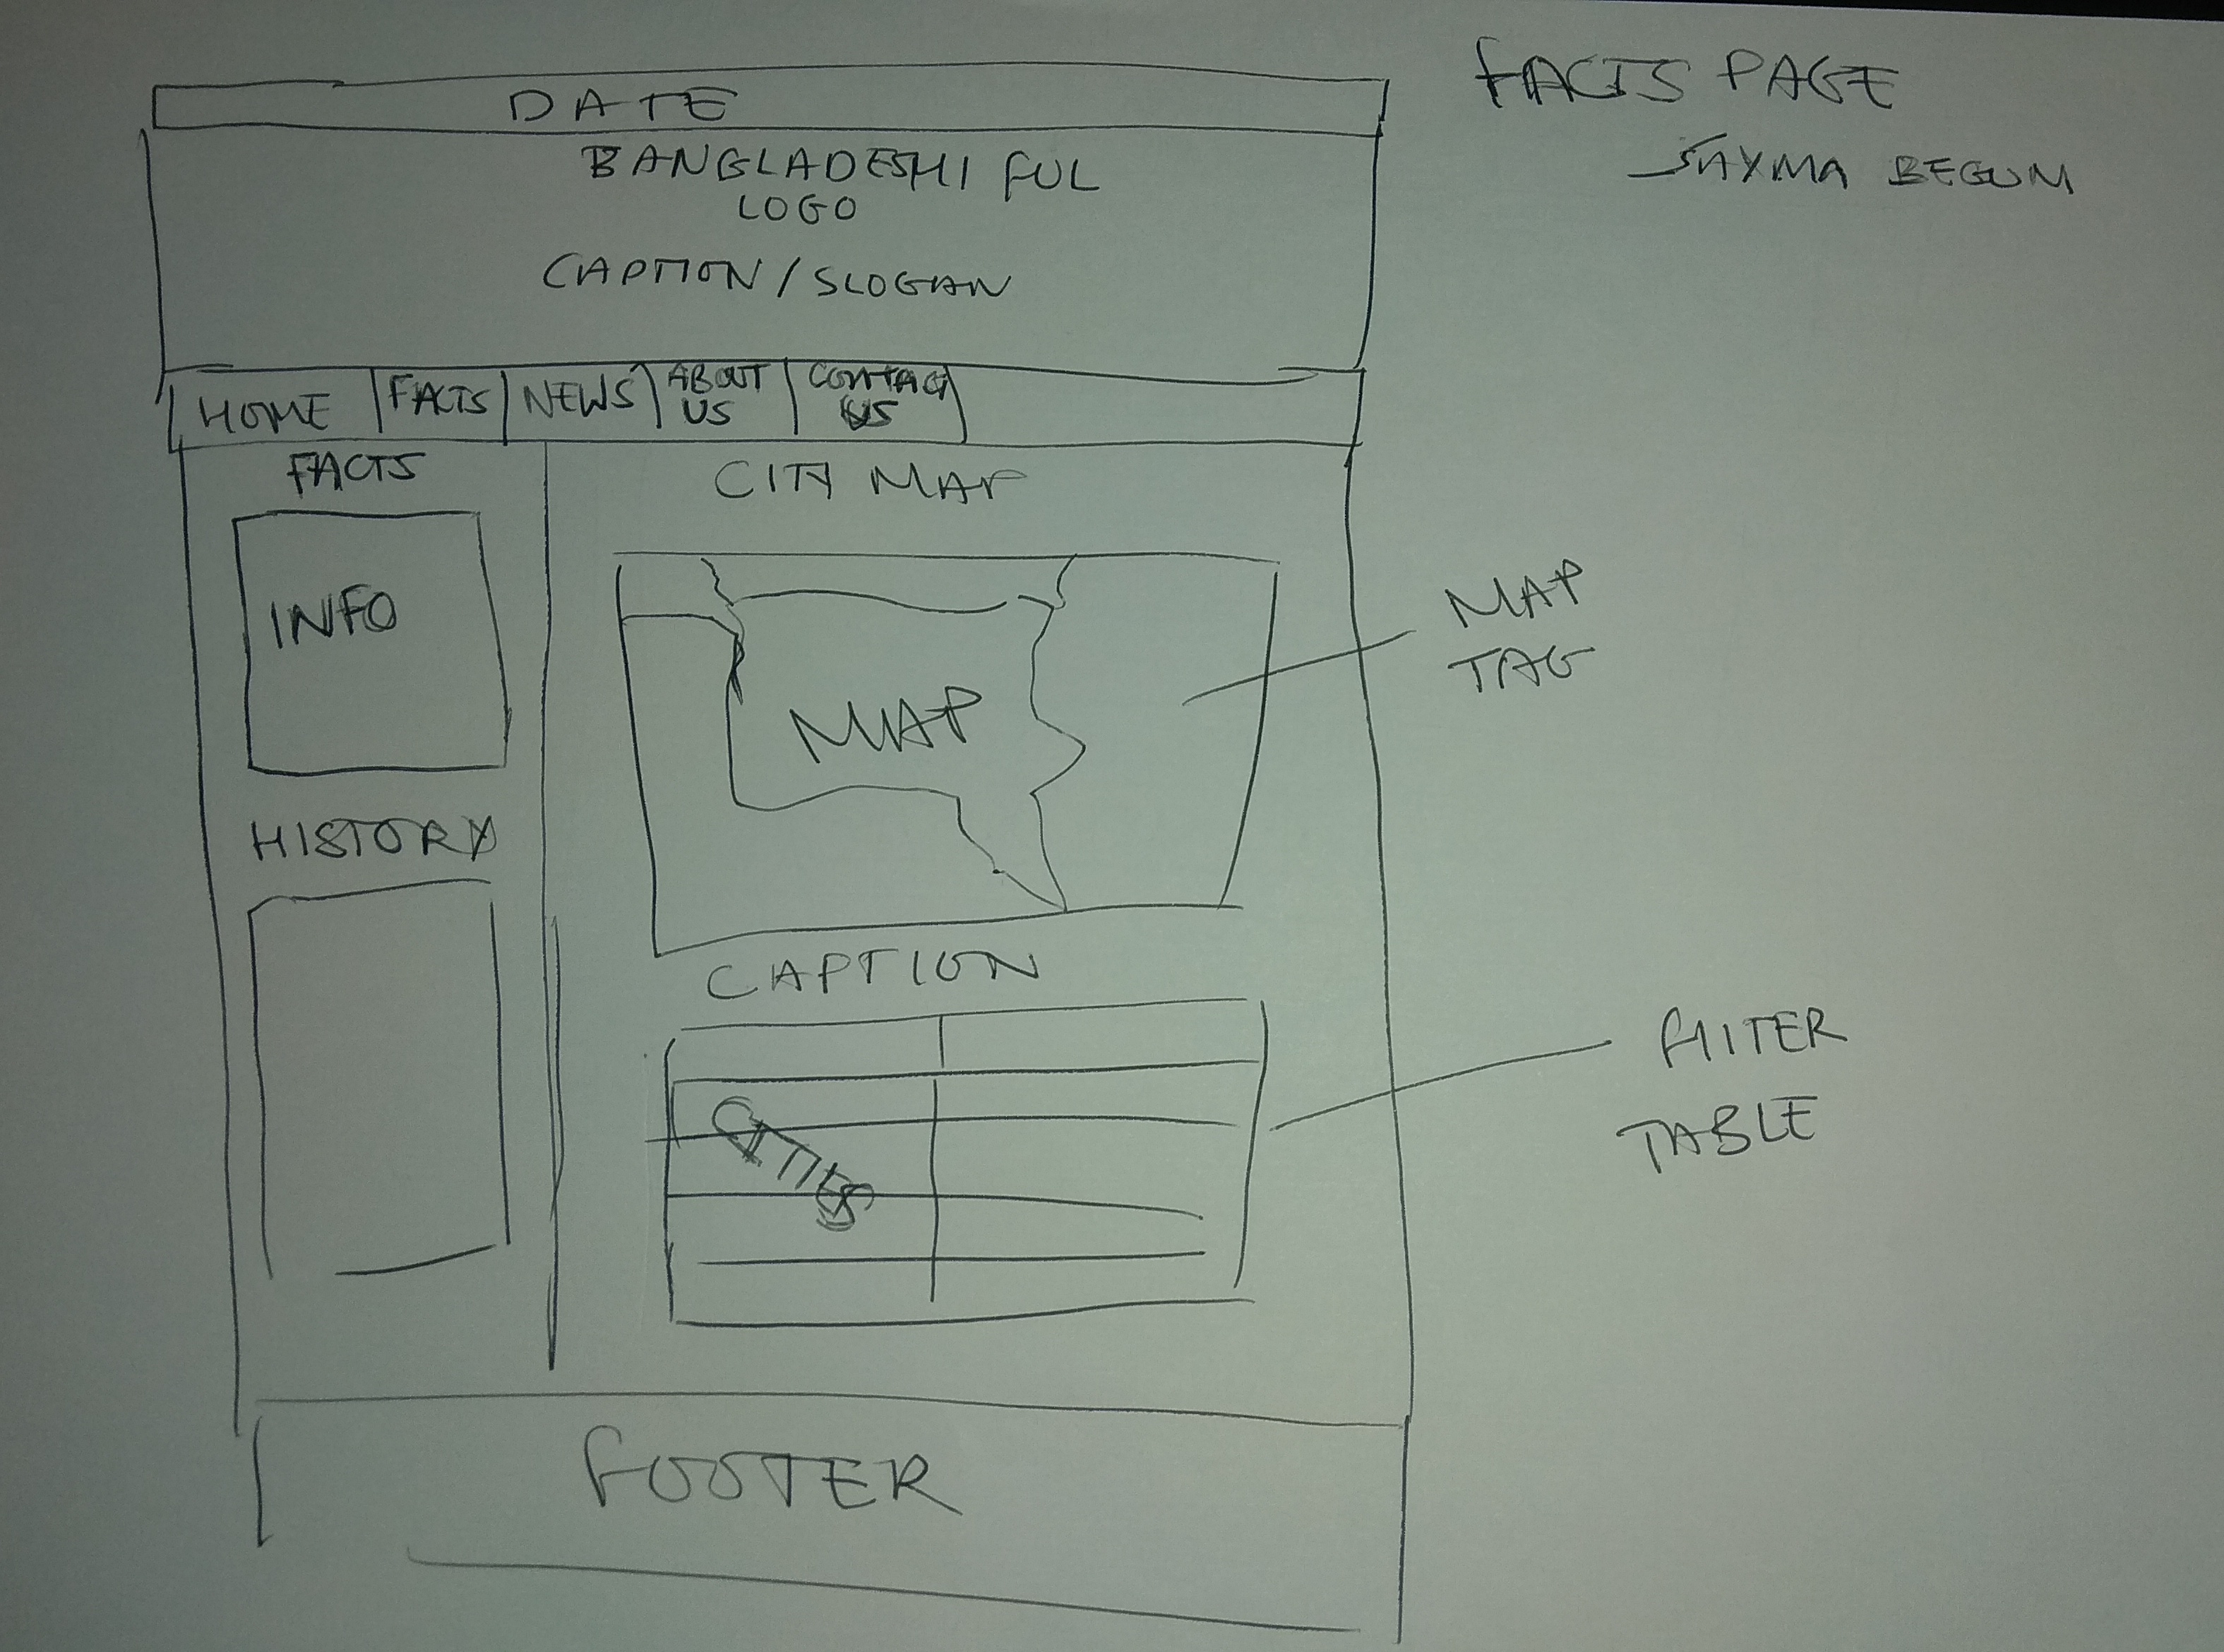 FACTS PAGE
SAYMA BEGUM
DATE
BANGLADESHI FUL
LOGO
CAPTION / SLOGAN
HOME FACTS NEWS ABOUT US CONTACT US
FACTS
CITY MAP
INFO
MAP
MAP
TAG
HISTORY
CAPTION
CITIES
FILTER
TABLE
FOOTER